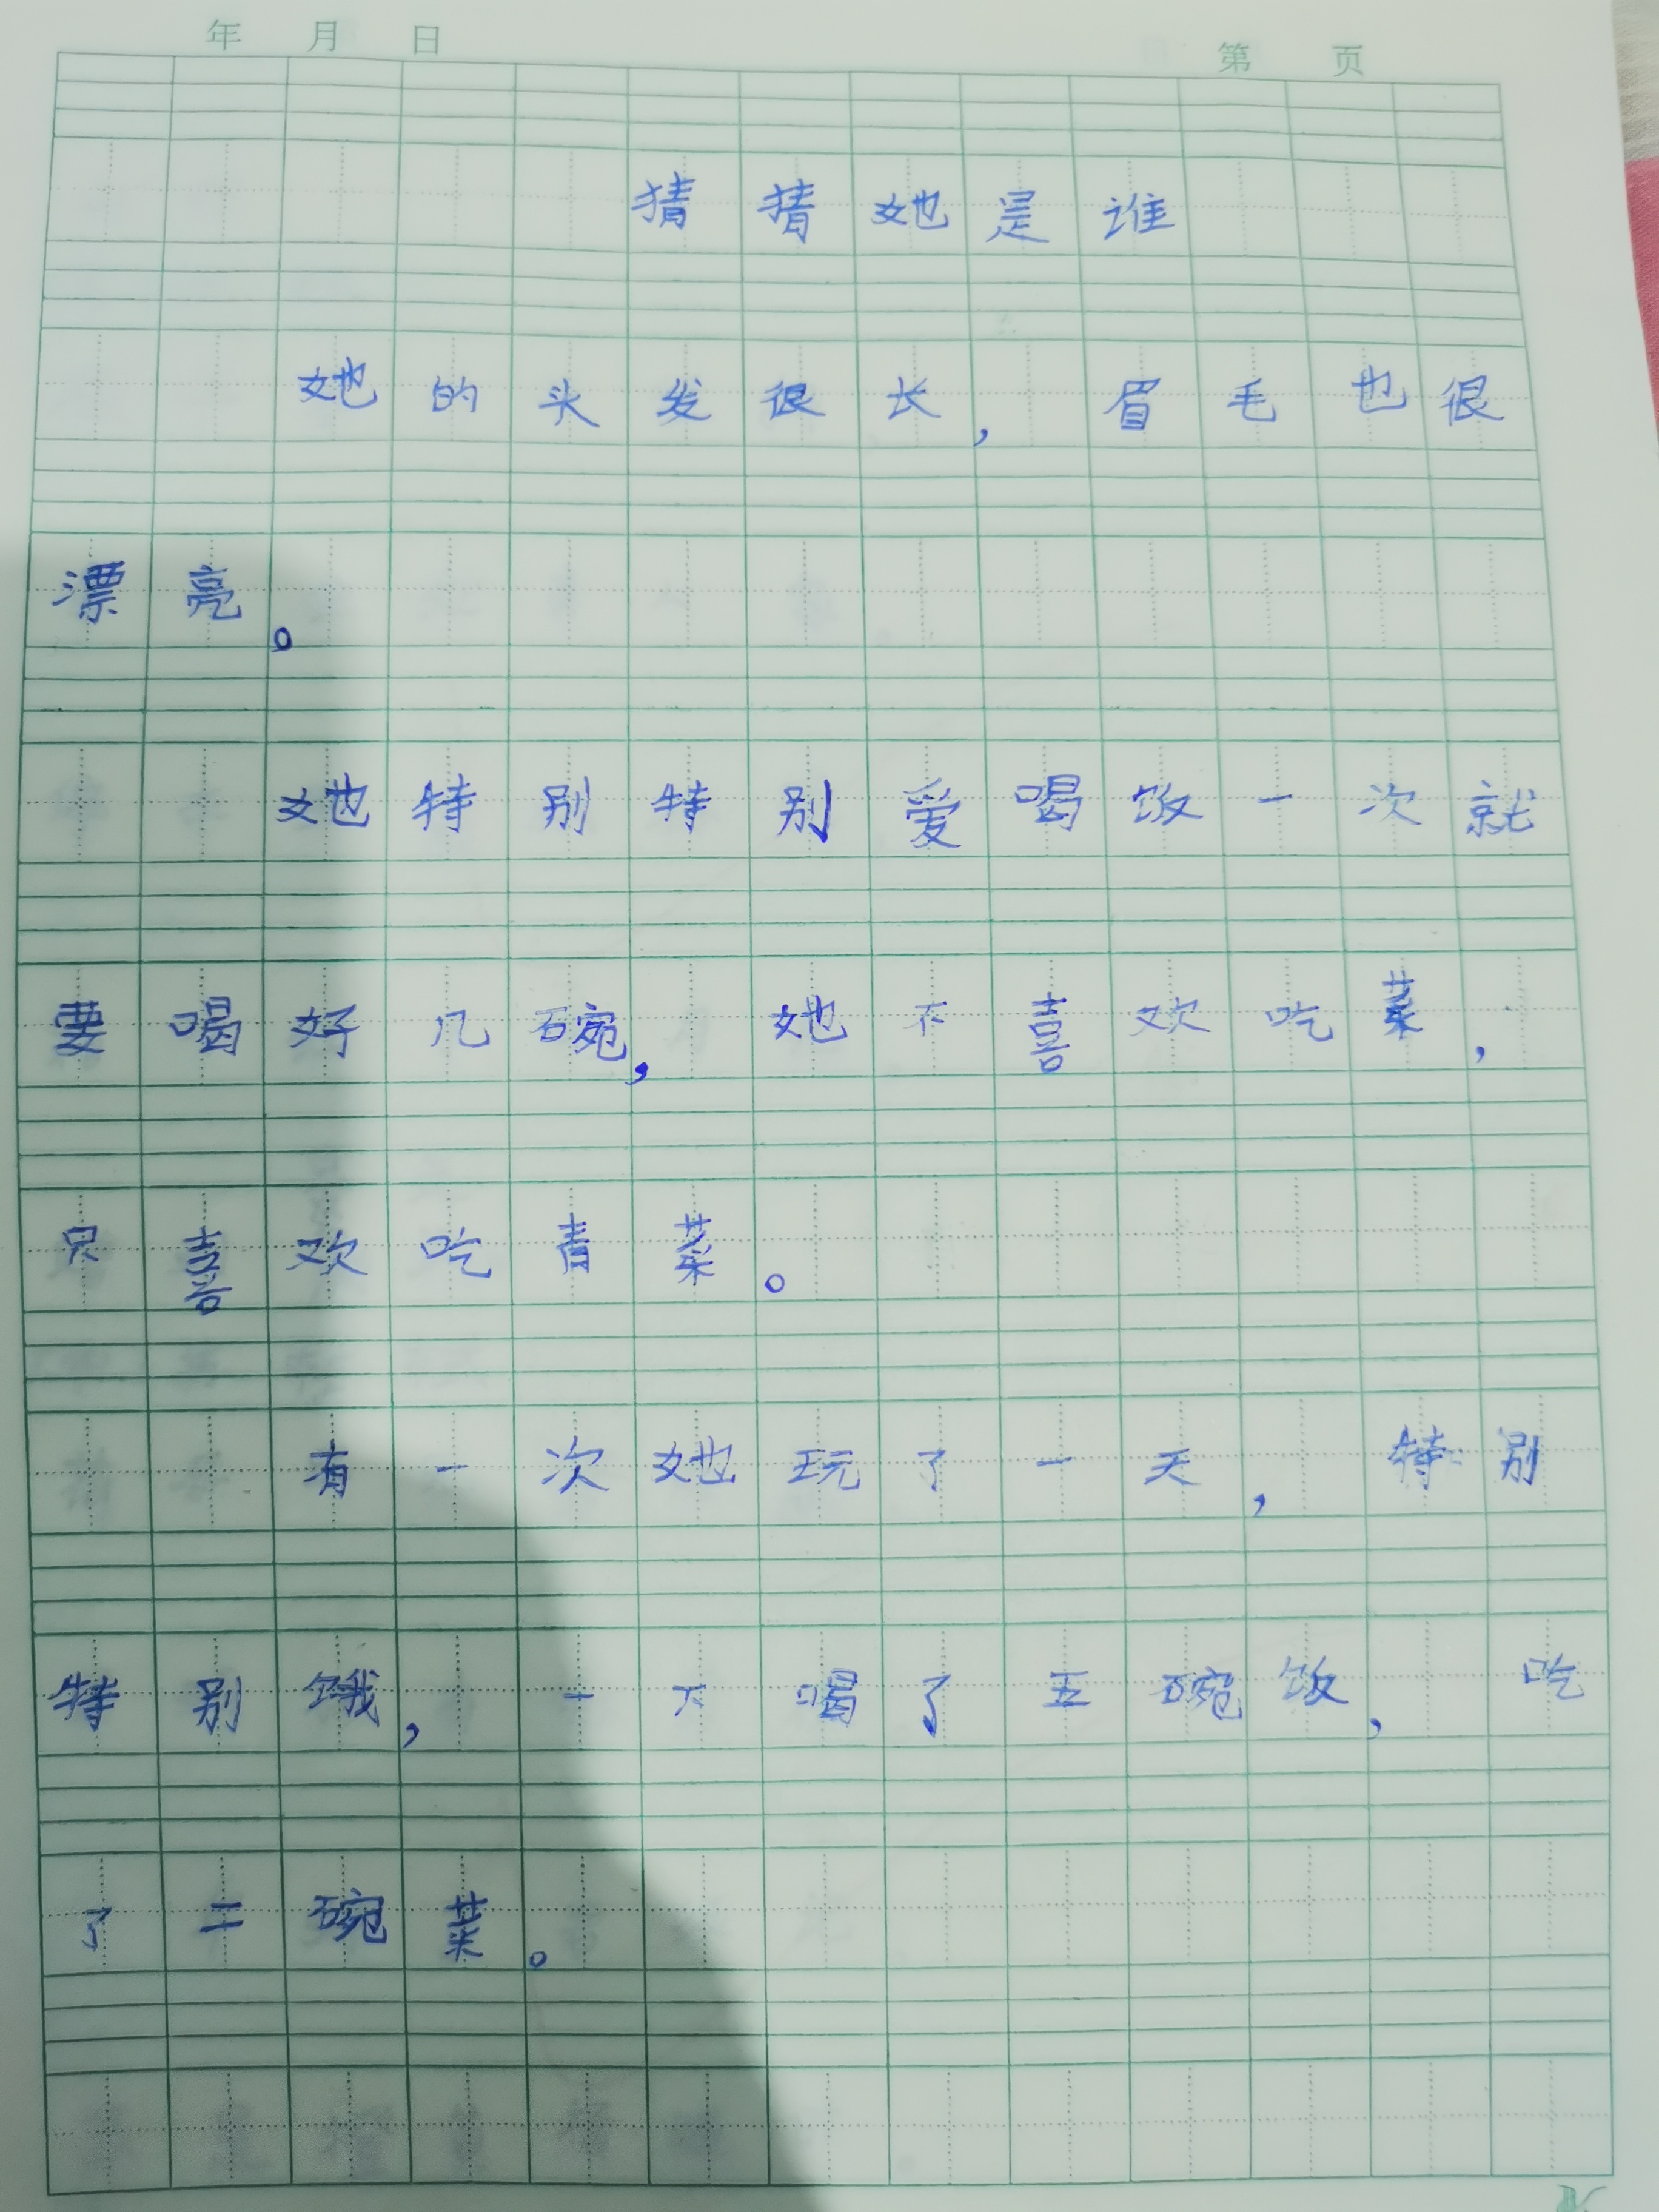 年 月 日 第 页
猜猜她是谁
她的头发很长，眉毛也很
漂亮。
她特别特别爱喝饭一次就
要喝好几碗，她不喜欢吃菜，
只喜欢吃青菜。
有一次她玩了一天，特别
特别饿，一下喝了五碗饭，吃
了二碗菜。